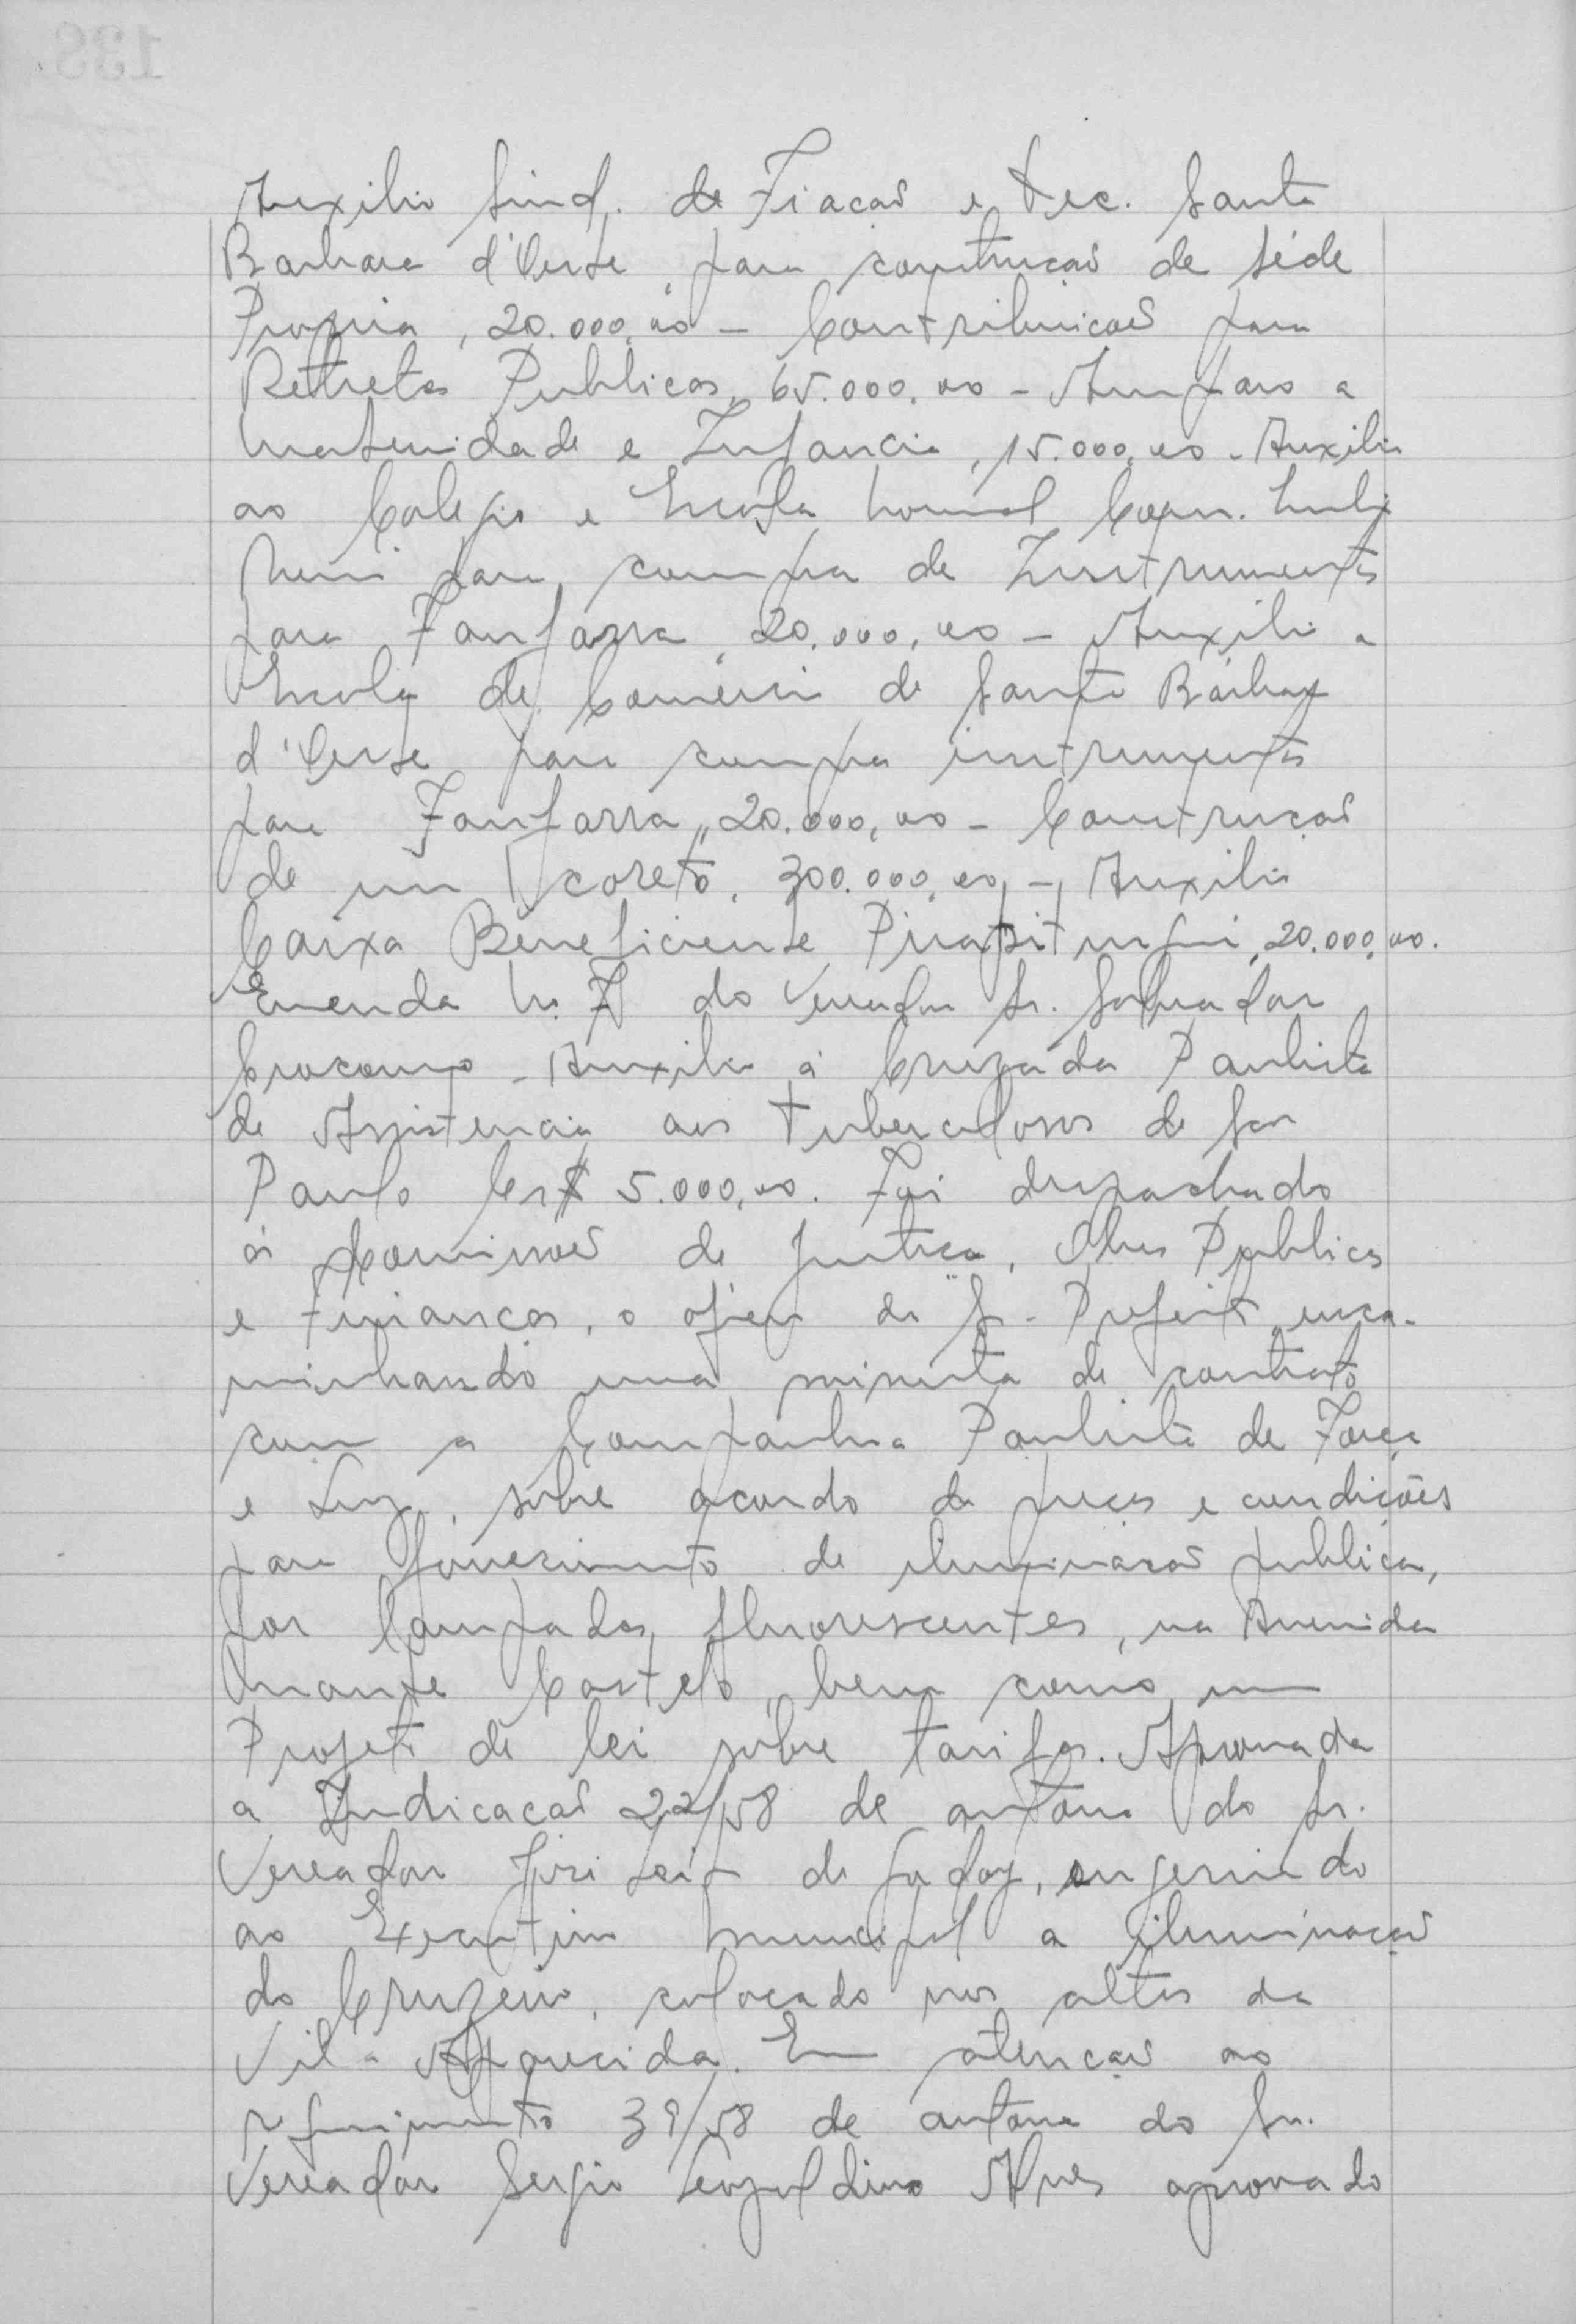 Auxilio Sind. de Fiacaõ e tec. Santa
Barbara d'Oeste, para construcaõ de séde
Propria, 20.000,00 - Contribuicaõ para
Retretas Publicas, 65.000,00 - Amparo a
Maternidade e Infancia, 15.000,00 - Auxilio
ao Colegio e Escola Normal Com. Emilio
Romi para compra de Instrumentos
para Fanfarra, 20.000,00 - Auxilio a
Escola de Comércio de Santa Bárbara
d'Oeste para compra instrumentos
para Fanfarra, 20.000,00 - Construcaõ
de um "coreto", 300.000,00, - Auxilio
Caixa Beneficiente Piratitingui, 20.000,00.
Emenda N. 7 do Vereador Sr. Salvador
- Auxilio á Cruzada Paulista
de Assistencia aos tuberculosos de Sao
Paulo Cr$ 5.000,00. Foi despachado
ás Comissoẽs de Justica, Obras Publicas
e Financas, o oficio do Sr. Prefeito, enca-
minhando uma minuta de contrato
com a Companhia Paulista de Força
e Luz, sobre acordo de preços e condições
para fornecimento de iluminacaõ publica,
por lampadas fluorescentes, na Avenida
Monte Castelo, bem como, um
Projeto de lei sôbre tarifas. Aprovada
a Indicacaõ 22/58 de autoria do Sr.
Vereador de Godoy, sugerindo
ao Executivo Municipal a iluminaçaõ
do Cruzeiro, colocado nos altos da
Vila Aparecida. Em atencaõ ao
requerimento 39/58 de autoria do Sr.
Vereador Sergio Leopoldino Alves aprovado